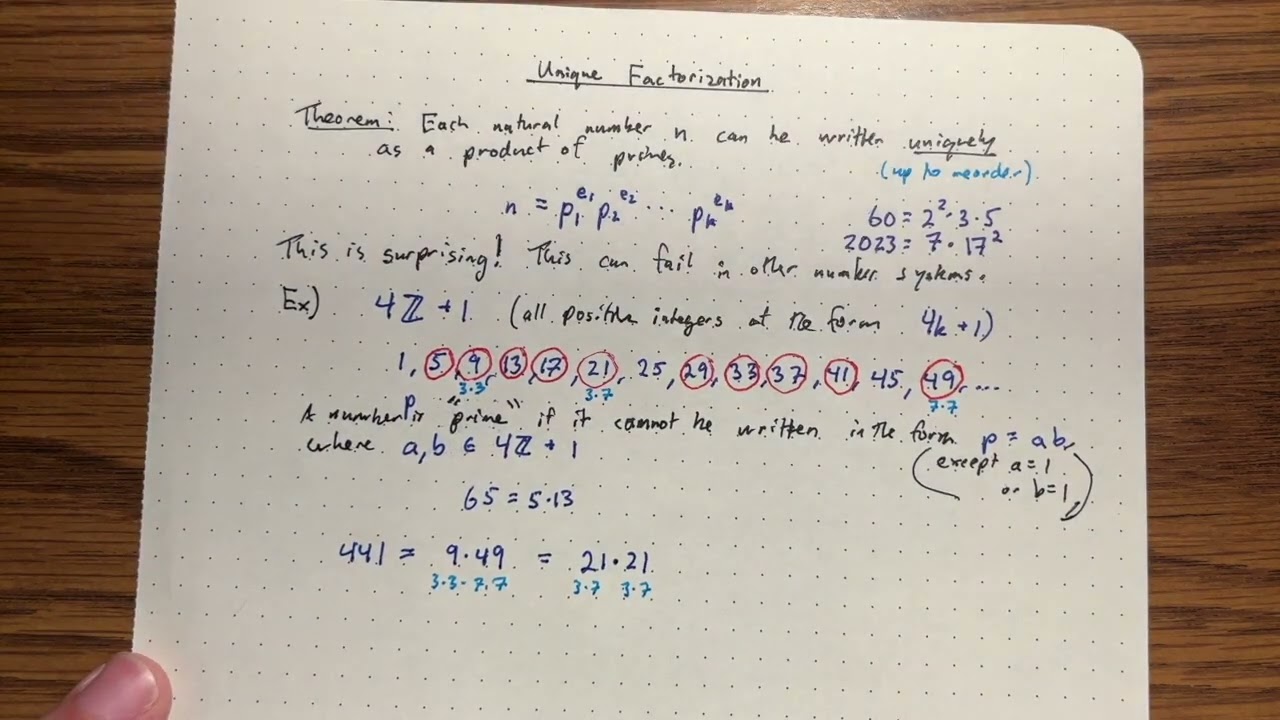 Unique Factorization
Theorem: Each natural number n can be written uniquely
as a product of primes.
(up to reorder).
n = p₁^e₁ p₂^e₂ ··· pₖ^eₖ
60 = 2²·3·5
2023 = 7·17²
This is surprising! This can fail in other number systems.
Ex) 4ℤ + 1 (all positive integers of the form 4k+1)
1, 5, 9, 13, 17, 21, 25, 29, 33, 37, 41, 45, 49, ...
3·3 3·7 7·7
A number p is "prime" if it cannot be written in the form p = ab,
where a, b ∈ 4ℤ + 1
(except a=1
or b=1)
65 = 5·13
441 = 9·49 = 21·21
3·3·7·7 3·7 3·7